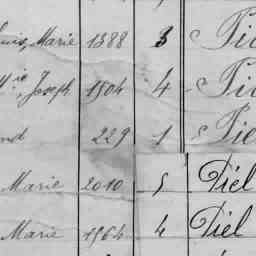 Louis, Marie 1388 3 Pie
M.ie Joseph 1504 4 Pie
nd 229 1 Pie
Marie 2010 5 Piél
Marie 1564 4 Piel